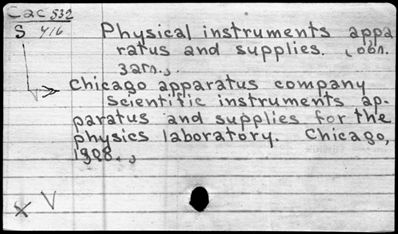 Cac 532
S 416 Physical instruments appa
ratus and supplies.
Chicago apparatus company
Scientific instruments ap-
paratus and supplies for the
physics laboratory. Chicago,
1908.
X V